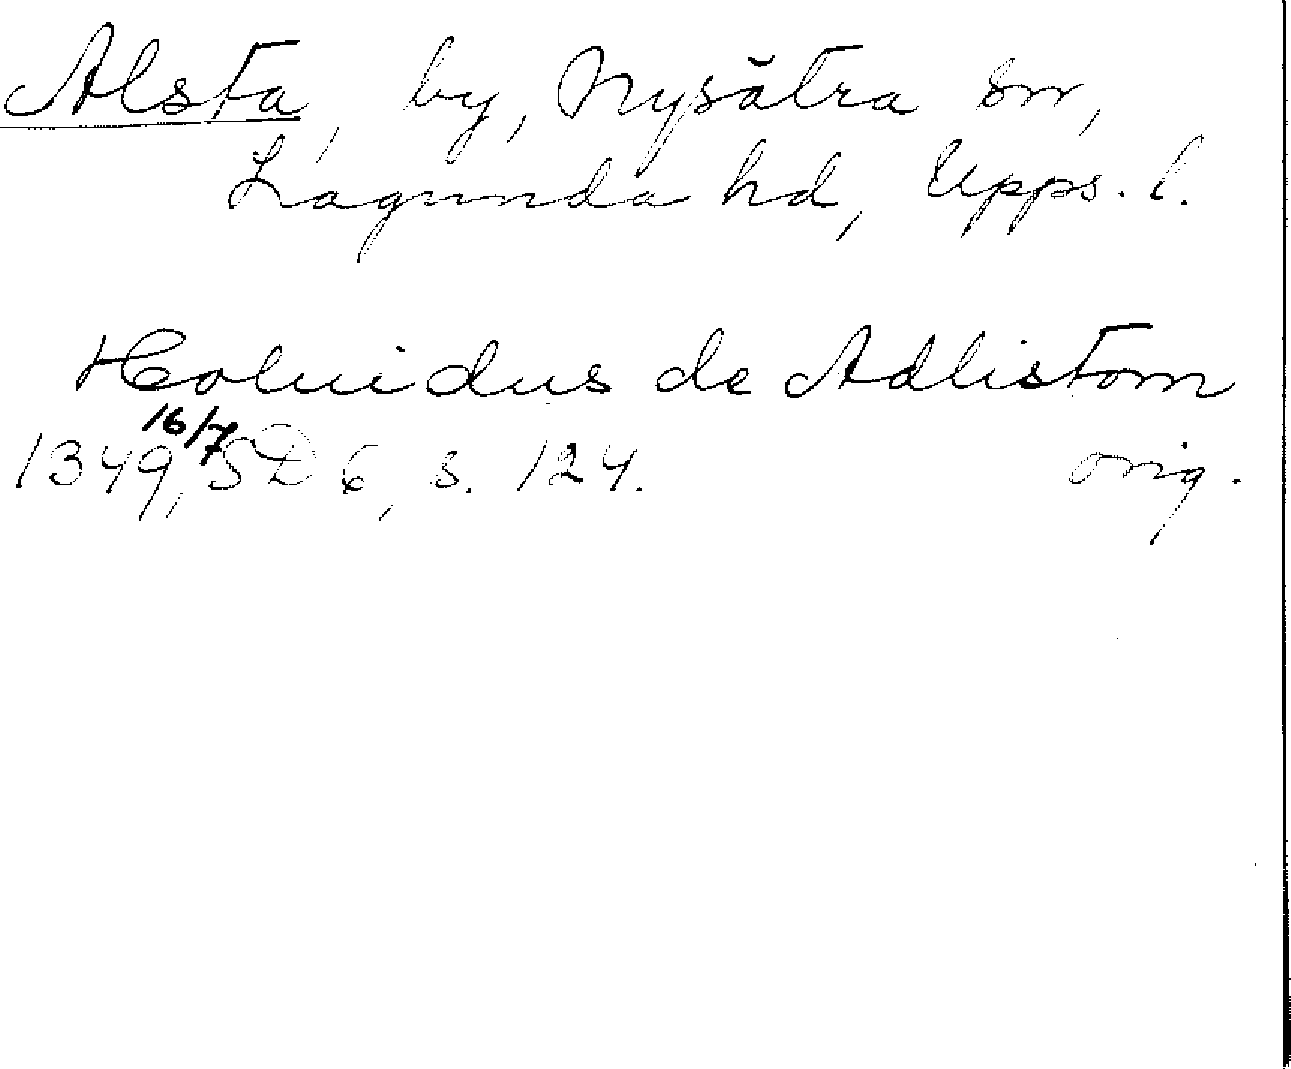 Alsta, by, Nysätra sn,
Lagunda hd, Upps. l.
Holuidus de Adlistom
1349 16/7, SD 6, s. 124. orig.